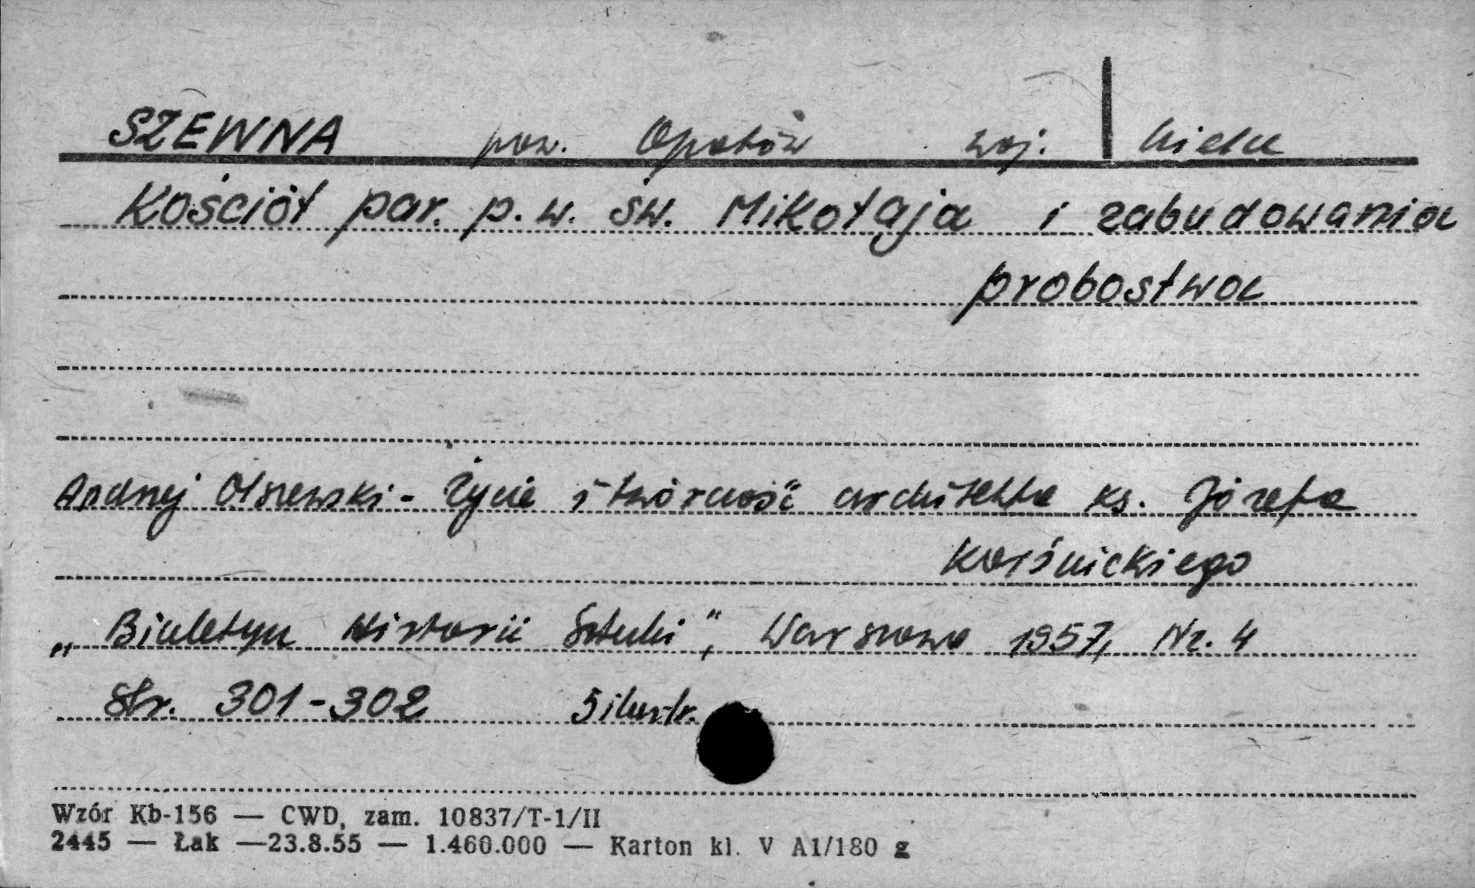 SZEWNA pow. Opatów woj. Kielce
Kościół par. p.w. św. Mikołaja i zabudowania
probostwa
Andrzej Olszewski - Życie i twórczość architekta ks. Józefa
Karśnickiego
„Biuletyn Historii Sztuki", Warszawa 1957, Nr. 4
Str. 301-302 5 ilustr.
Wzór Kb-156 — CWD, zam. 10837/T-1/II
2445 — Łak —23.8.55 — 1.460.000 — Karton kl. V A1/180 g